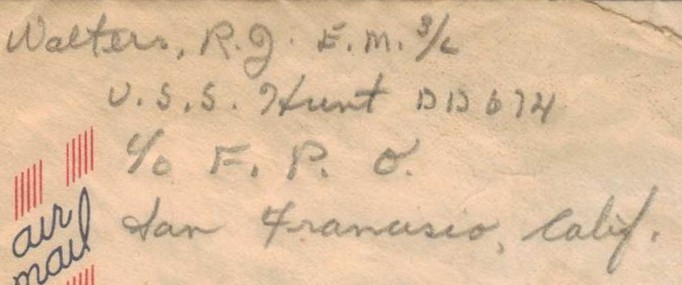 Walters, R.J. E.M. 3/c
U.S.S. Hunt DD674
c/o F. P. O.
San Francisco, Calif.
air
mail